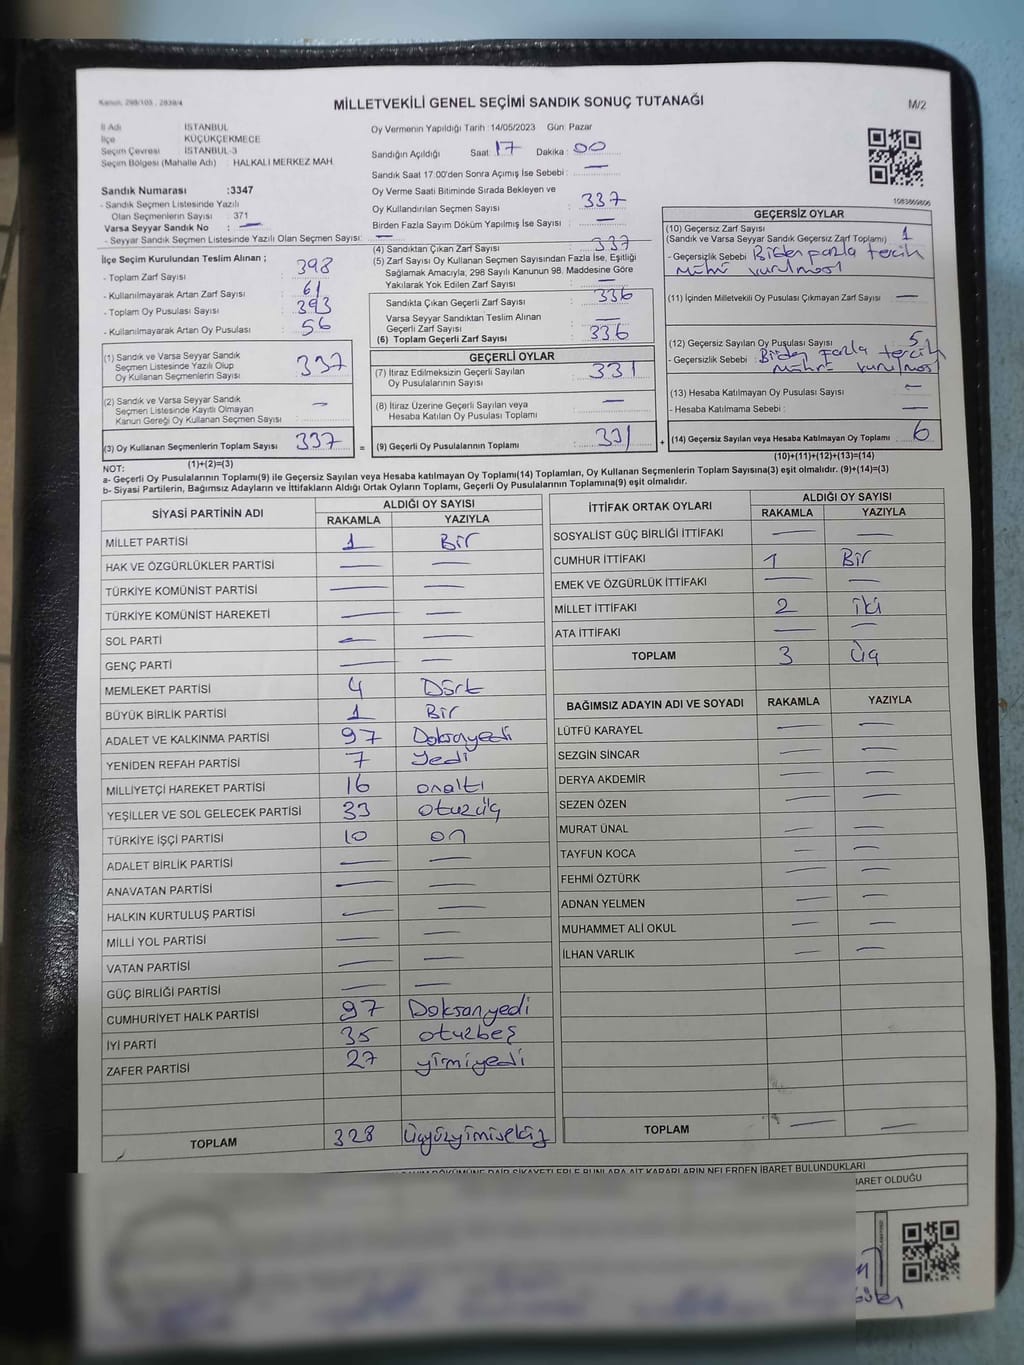 Kanun, 298/105 , 2839/4
MİLLETVEKİLİ GENEL SEÇİMİ SANDIK SONUÇ TUTANAĞI
M/2
İl Adı İSTANBUL
İlçe KÜÇÜKÇEKMECE
Seçim Çevresi İSTANBUL-3
Seçim Bölgesi (Mahalle Adı) : HALKALI MERKEZ MAH.
Oy Vermenin Yapıldığı Tarih :14/05/2023 Gün: Pazar
Sandığın Açıldığı Saat: 17 Dakika : 00
Sandık Saat 17:00'den Sonra Açımış İse Sebebi : —
Oy Verme Saati Bitiminde Sırada Bekleyen ve
Oy Kullandırılan Seçmen Sayısı : 337
Birden Fazla Sayım Döküm Yapılmış İse Sayısı : —
Sandık Numarası :3347
- Sandık Seçmen Listesinde Yazılı
Olan Seçmenlerin Sayısı : 371
Varsa Seyyar Sandık No : —
- Seyyar Sandık Seçmen Listesinde Yazılı Olan Seçmen Sayısı: —
İlçe Seçim Kurulundan Teslim Alınan ;
- Toplam Zarf Sayısı : 398
- Kullanılmayarak Artan Zarf Sayısı : 61
- Toplam Oy Pusulası Sayısı : 393
- Kullanılmayarak Artan Oy Pusulası : 56
(1) Sandık ve Varsa Seyyar Sandık
Seçmen Listesinde Yazılı Olup
Oy Kullanan Seçmenlerin Sayısı : 337
(2) Sandık ve Varsa Seyyar Sandık
Seçmen Listesinde Kayıtlı Olmayan
Kanun Gereği Oy Kullanan Seçmen Sayısı : —
(3) Oy Kullanan Seçmenlerin Toplam Sayısı : 337
(1)+(2)=(3)
(4) Sandıktan Çıkan Zarf Sayısı : 337
(5) Zarf Sayısı Oy Kullanan Seçmen Sayısından Fazla İse, Eşitliği
Sağlamak Amacıyla, 298 Sayılı Kanunun 98. Maddesine Göre
Yakılarak Yok Edilen Zarf Sayısı : —
Sandıkta Çıkan Geçerli Zarf Sayısı : 336
Varsa Seyyar Sandıktan Teslim Alınan
Geçerli Zarf Sayısı : —
(6) Toplam Geçerli Zarf Sayısı : 336
GEÇERLİ OYLAR
(7) İtiraz Edilmeksizin Geçerli Sayılan
Oy Pusulalarının Sayısı : 331
(8) İtiraz Üzerine Geçerli Sayılan veya
Hesaba Katılan Oy Pusulası Toplamı : —
= (9) Geçerli Oy Pusulalarının Toplamı : 331 +
1083869806
GEÇERSİZ OYLAR
(10) Geçersiz Zarf Sayısı
(Sandık ve Varsa Seyyar Sandık Geçersiz Zarf Toplamı) : 1
- Geçersizlik Sebebi : Birden fazla tercih
mührü vurulmast
(11) İçinden Milletvekili Oy Pusulası Çıkmayan Zarf Sayısı : —
(12) Geçersiz Sayılan Oy Pusulası Sayısı : 5
- Geçersizlik Sebebi : Birden fazla tercih
mührü vurulmast
(13) Hesaba Katılmayan Oy Sayısı : —
- Hesaba Katılmama Sebebi : —
(14) Geçersiz Sayılan veya Hesaba Katılmayan Oy Toplamı : 6
(10)+(11)+(12)+(13)=(14)
NOT:
a- Geçerli Oy Pusulalarının Toplamı(9) ile Geçersiz Sayılan veya Hesaba katılmayan Oy Toplamı(14) Toplamları, Oy Kullanan Seçmenlerin Toplam Sayısına(3) eşit olmalıdır. (9)+(14)=(3)
b- Siyasi Partilerin, Bağımsız Adayların ve İttifakların Aldığı Ortak Oyların Toplamı, Geçerli Oy Pusulalarının Toplamına(9) eşit olmalıdır.
SİYASİ PARTİNİN ADI ALDIĞI OY SAYISI
RAKAMLA YAZIYLA
MİLLET PARTİSİ 1 Bir
HAK VE ÖZGÜRLÜKLER PARTİSİ — —
TÜRKİYE KOMÜNİST PARTİSİ — —
TÜRKİYE KOMÜNİST HAREKETİ — —
SOL PARTİ — —
GENÇ PARTİ — —
MEMLEKET PARTİSİ 4 Dört
BÜYÜK BİRLİK PARTİSİ 1 Bir
ADALET VE KALKINMA PARTİSİ 97 Doksayedi
YENİDEN REFAH PARTİSİ 7 Yedi
MİLLİYETÇİ HAREKET PARTİSİ 16 onaltı
YEŞİLLER VE SOL GELECEK PARTİSİ 33 otuzüç
TÜRKİYE İŞÇİ PARTİSİ 10 on
ADALET BİRLİK PARTİSİ — —
ANAVATAN PARTİSİ — —
HALKIN KURTULUŞ PARTİSİ — —
MİLLİ YOL PARTİSİ — —
VATAN PARTİSİ — —
GÜÇ BİRLİĞİ PARTİSİ — —
CUMHURİYET HALK PARTİSİ 97 Doksanyedi
İYİ PARTİ 35 otuzbeş
ZAFER PARTİSİ 27 yirmiyedi
TOPLAM 328 üçyüzyirmisekiz
İTTİFAK ORTAK OYLARI ALDIĞI OY SAYISI
RAKAMLA YAZIYLA
SOSYALİST GÜÇ BİRLİĞİ İTTİFAKI — —
CUMHUR İTTİFAKI 1 Bir
EMEK VE ÖZGÜRLÜK İTTİFAKI — —
MİLLET İTTİFAKI 2 iki
ATA İTTİFAKI — —
TOPLAM 3 üç
BAĞIMSIZ ADAYIN ADI VE SOYADI RAKAMLA YAZIYLA
LÜTFÜ KARAYEL — —
SEZGİN SİNCAR — —
DERYA AKDEMİR — —
SEZEN ÖZEN — —
MURAT ÜNAL — —
TAYFUN KOCA — —
FEHMİ ÖZTÜRK — —
ADNAN YELMEN — —
MUHAMMET ALİ OKUL — —
İLHAN VARLIK — —
TOPLAM — —
DÖKÜMÜNE DAİR ŞİKAYETLERLE BUNLARA AİT KARARLARIN NELERDEN İBARET BULUNDUKLARI
BARET OLDUĞU